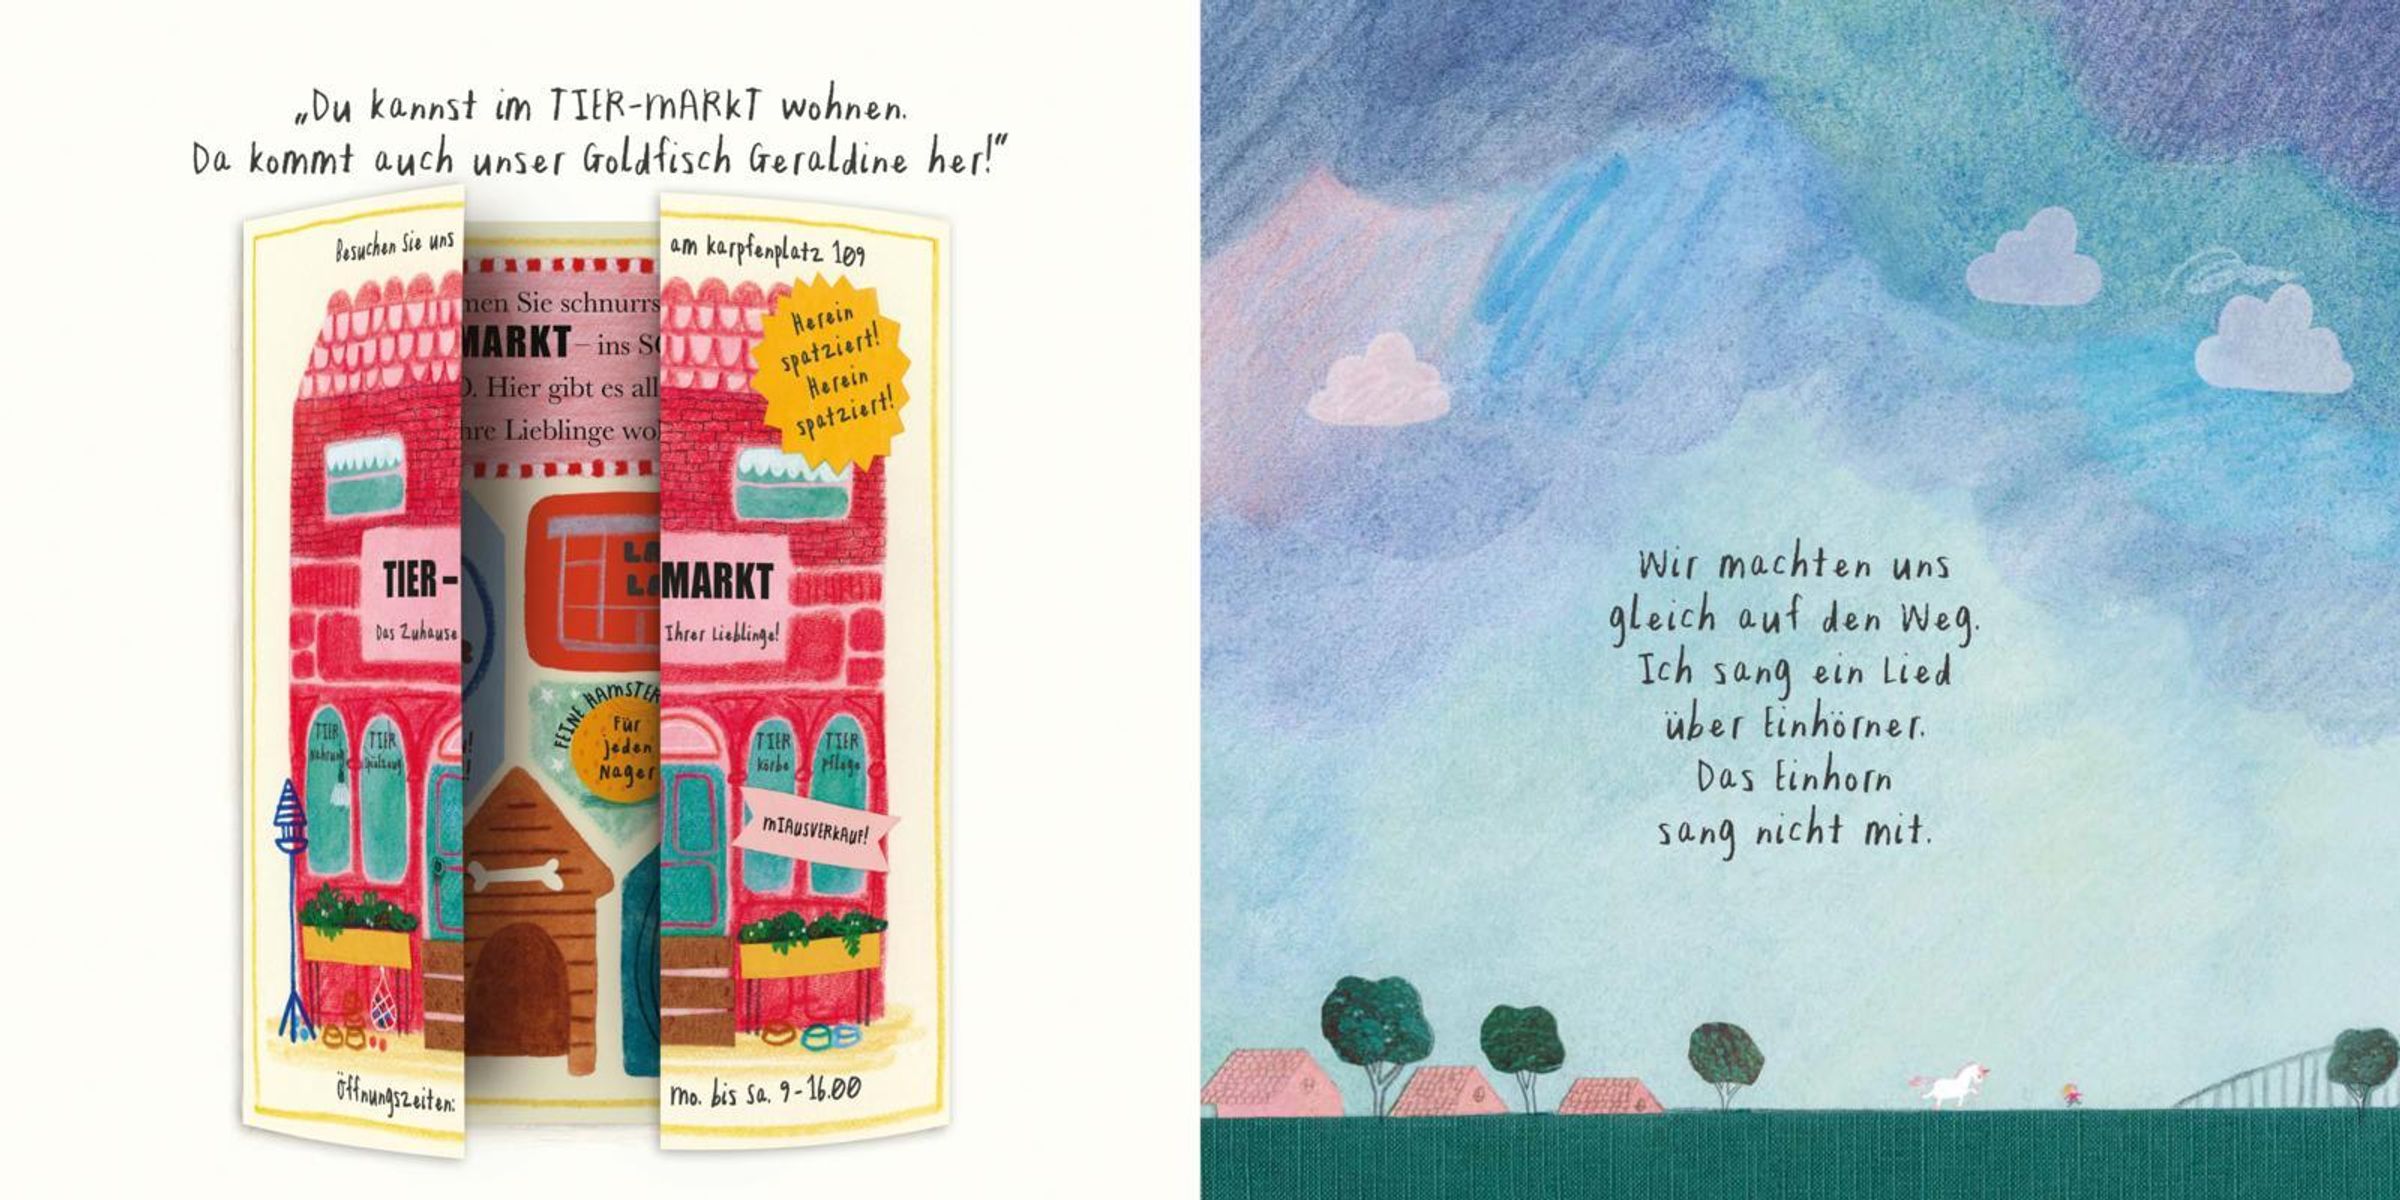 „Du kannst im TIER-MARKT wohnen.
Da kommt auch unser Goldfisch Geraldine her!“
Besuchen Sie uns
am Karpfenplatz 109
Herein
spatziert!
Herein
spatziert!
Sie schnurrs
MARKT – ins
Hier gibt es all
Lieblinge wo
TIER-
MARKT
Das Zuhause
Ihrer Lieblinge!
FEINE HAMSTER
Für
jeden
Nager
TIER
Nahrung
TIER
Spielzeug
TIER
Körbe
TIER
Pflege
MIAUSVERKAUF!
Öffnungszeiten:
Mo. bis Sa. 9-16.00
Wir machten uns
gleich auf den Weg.
Ich sang ein Lied
über Einhörner.
Das Einhorn
sang nicht mit.